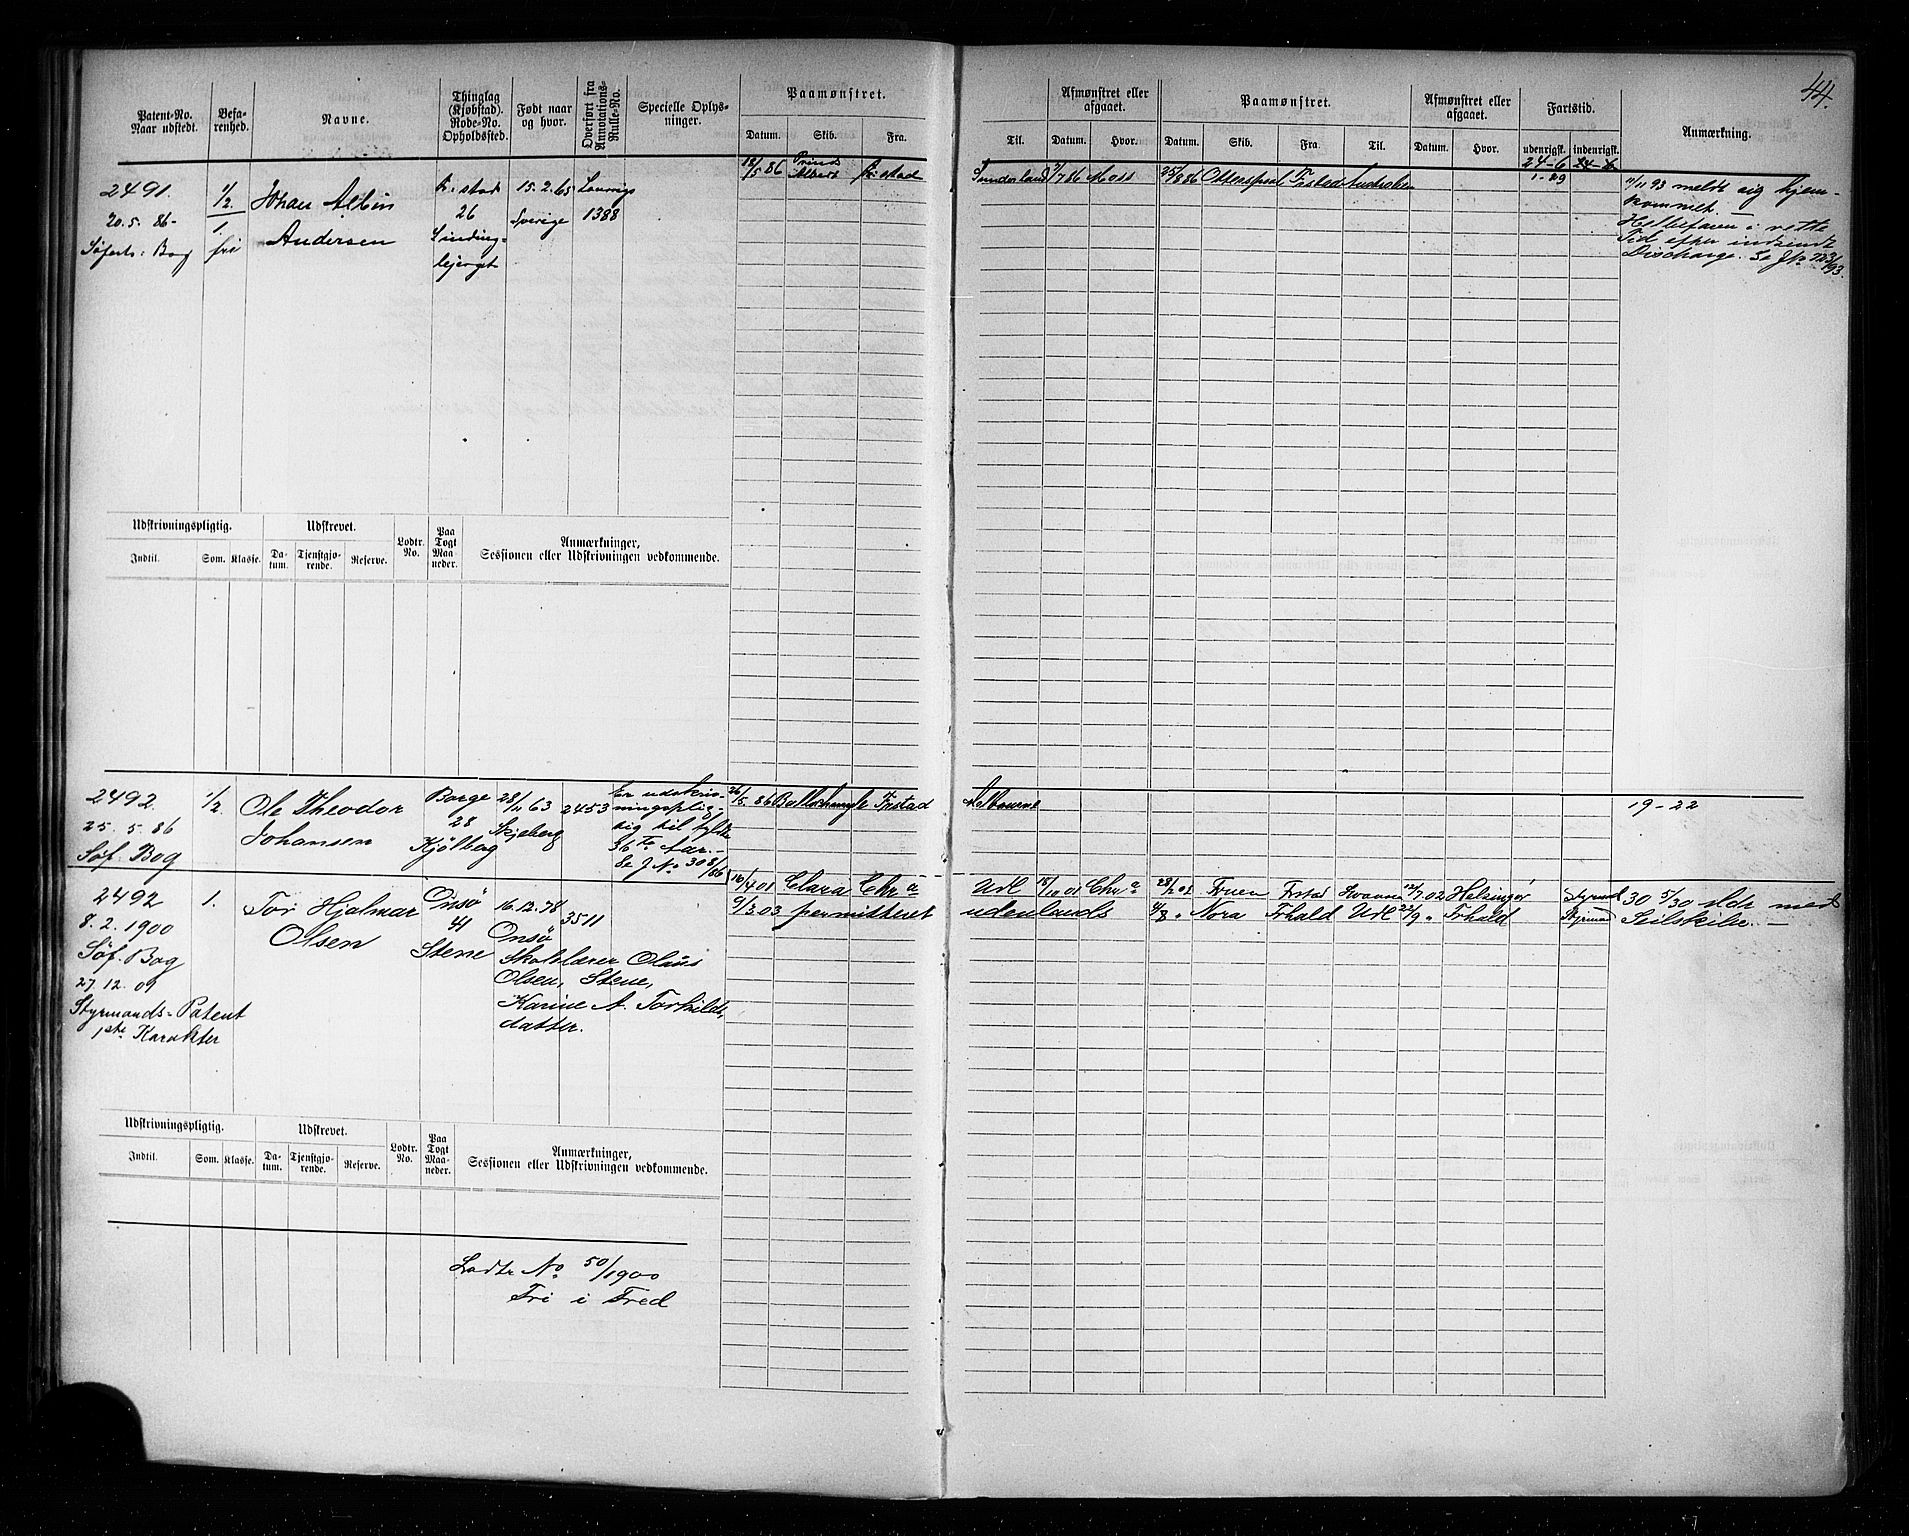 44.
Patent-No. Naar udstedt.
Befarenhed.
Navne.
Thinglag (Kjøbstad). Rode-No. Opholdssted.
Født naar og hvor.
Overført fra Annotations-Rulle-No.
Specielle Oplysninger.
Paamønstret.
Datum. Skib. Fra.
Til.
Afmønstret eller afgaaet.
Datum. Hvor.
Paamønstret.
Datum. Skib. Fra. Til.
Afmønstret eller afgaaet.
Datum. Hvor.
Fartstid.
udenrigsk. indenrigsk.
Anmærkning.
24-6 24-6
1-29
2491.
20.5.86-
Søfarts: Bog
1/2
1
fri
Johan Albin
Andersen
Fr:stad
26
15.2.65
Sverige
Laurvigs
1388
18/5 86 Prinds Albert Fr:stad
Sunderland 7/7 86 Moss
25/8 86
11/11 93 meldt sig hjem-
kommet.
i rette
Tid efter indsendt
Discharge. Se J№
Udskrivningspligtig.
Indtil. Som. Klasse.
Udskrevet.
Datum. Tjenstgjorende. Reserve.
Lodtr. No.
Paa Togt Maaneder.
Anmærkninger,
Sessionen eller Udskrivningen vedkommende.
2492.
25.5.86
Søf. Bog
1/2
Ole Theodor
Johansen
Borge
28
Kjølberg
28/11 63
Skjeberg
2453
Er udskriv-
ningsplig-
tig til fyldte
36 Te Aar.-
Se J No 308/86
26/5 86 Frstad
Melbourne
19-22
2492
8.2.1900
Søf. Bog
27.12.09
Styrmands-Patent
1ste Karakter
1.
Tor Hjalmar
Olsen
Onsø
41
Stene
16.12.78
Onsø
3511
Skolelærer Olaus
Olsen, Stene,
Karine A. Torkilds-
datter.
16/4 01 Clara Chr a
Udl 15/10 01 Chr a
28/2 02 Fruen Frstad 12/7 02 Helsingør
Styrmd
30 5/30 Mdr med
9/3 03 permitteret
udenlands
4/8 " Nora Frhald Udl 22/9 " Frhald
Styrmd
Seilskibe.-
Udskrivningspligtig.
Indtil. Som. Klasse.
Udskrevet.
Datum. Tjenstgjorende. Reserve.
Lodtr. No.
Paa Togt Maaneder.
Anmærkninger,
Sessionen eller Udskrivningen vedkommende.
Lodtr No 50/1900
Fri i Fred